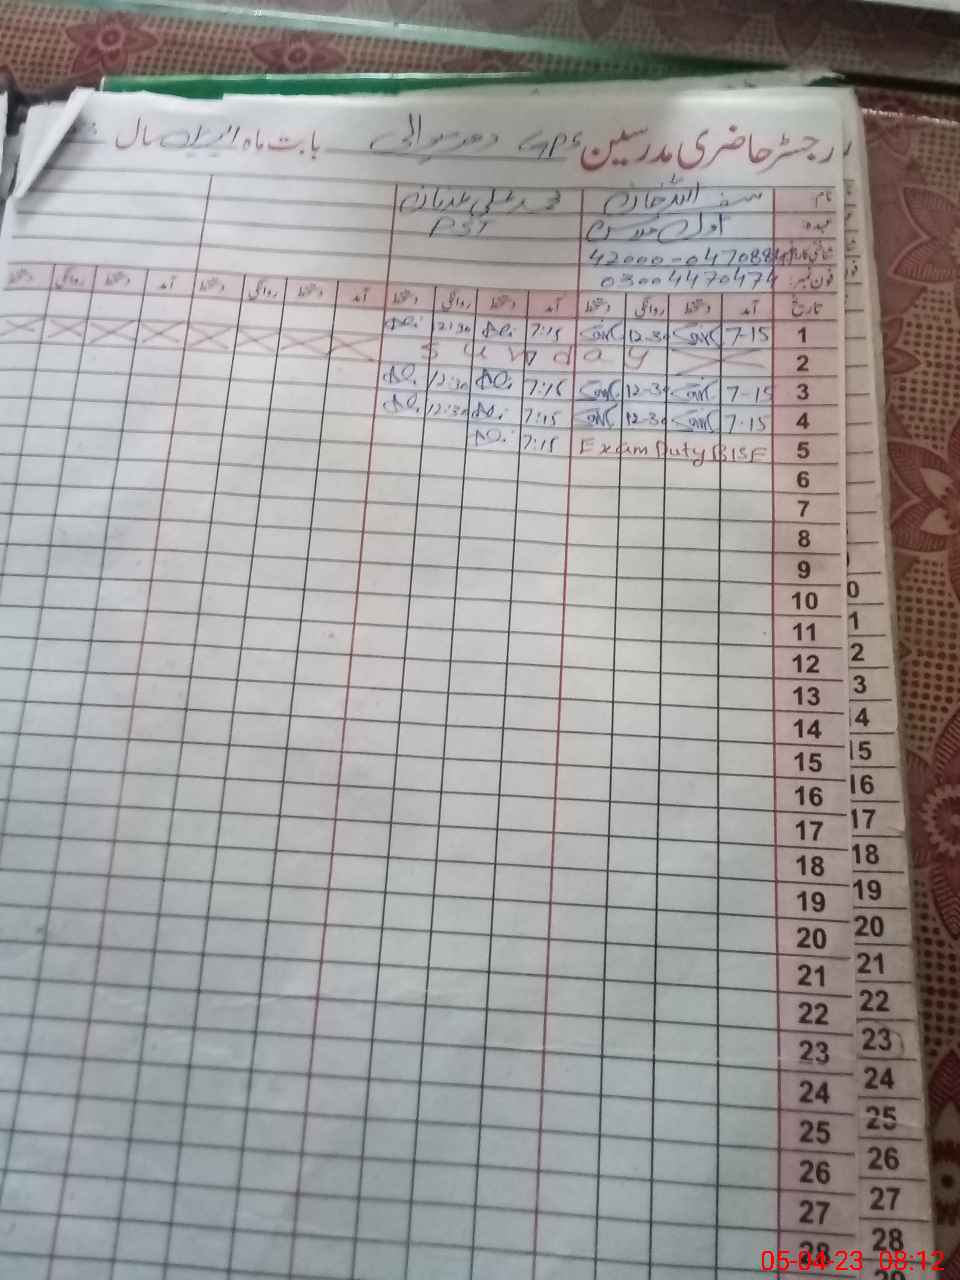 رجسٹر حاضری مدرسین GPS دھرمیوالی بابت ماہ اپریل سال
نام سیف اللہ خان محمد علی عدنان
عہدہ اول مدرس PST
شناختی کارڈ نمبر
فون نمبر: 03004470474
تاریخ آمد دستخط روانگی دستخط آمد دستخط روانگی دستخط آمد دستخط روانگی دستخط آمد دستخط روانگی دستخط
1 7-15 12-30 7:15 12:30
2 Sunday
3 7-15 12-30 7:15 12:30
4 7-15 12-30 7:15 12:30
5 Exam Duty BISE 7:15
6
7
8
9
10
11
12
13
14
15
16
17
18
19
20
21
22
23
24
25
26
27
28
0
1
2
3
4
15
16
17
18
19
20
21
22
23
24
25
26
27
28
05-04-23 08:12